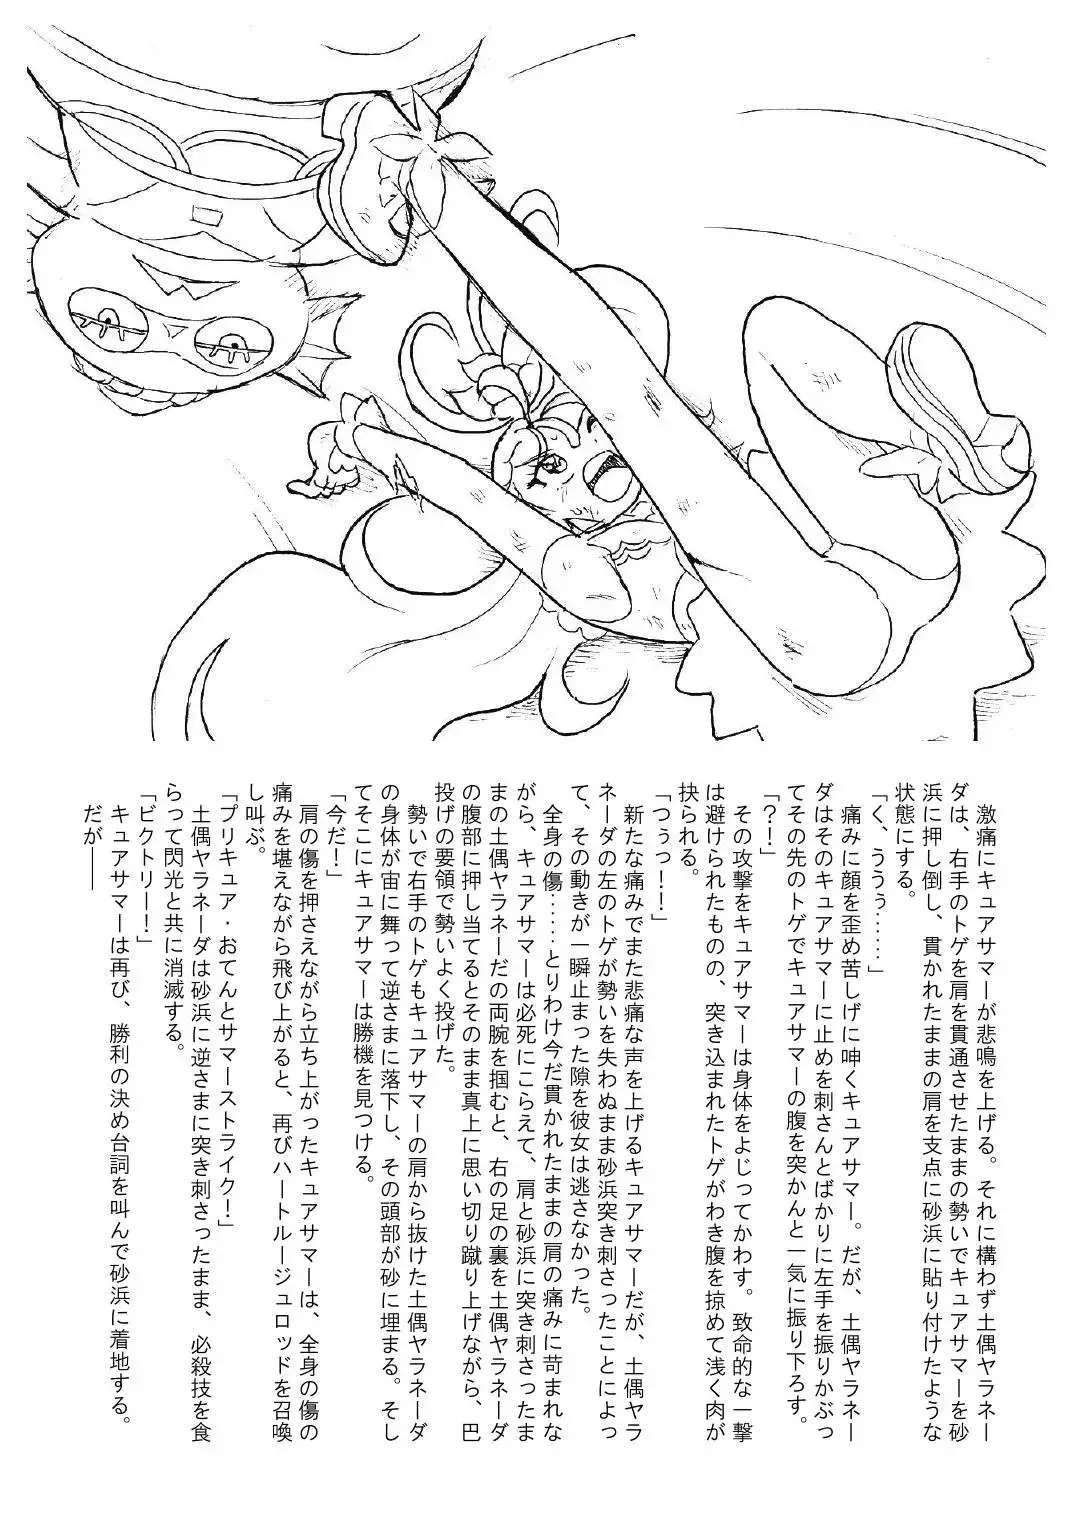 激痛にキュアサマーが悲鳴を上げる。それに構わず土偶ヤラネー
ダは、右手のトゲを肩を貫通させたままの勢いでキュアサマーを砂
浜に押し倒し、貫かれたままの肩を支点に砂浜に貼り付けたような
状態にする。
「く、ううぅ……」
痛みに顔を歪め苦しげに呻くキュアサマー。だが、土偶ヤラネー
ダはそのキュアサマーに止めを刺さんとばかりに左手を振りかぶっ
てその先のトゲでキュアサマーの腹を突かんと一気に振り下ろす。
「?!」
その攻撃をキュアサマーは身体をよじってかわす。致命的な一撃
は避けられたものの、突き込まれたトゲがわき腹を掠めて浅く肉が
抉られる。
「つぅっ!!」
新たな痛みでまた悲痛な声を上げるキュアサマーだが、土偶ヤラ
ネーダの左のトゲが勢いを失わぬまま砂浜突き刺さったことによっ
て、その動きが一瞬止まった隙を彼女は逃さなかった。
全身の傷……とりわけ今だ貫かれたままの肩の痛みに苛まれな
がら、キュアサマーは必死にこらえて、肩と砂浜に突き刺さったま
まの土偶ヤラネーだの両腕を掴むと、右の足の裏を土偶ヤラネーダ
の腹部に押し当てるとそのまま真上に思い切り蹴り上げながら、巴
投げの要領で勢いよく投げた。
勢いで右手のトゲもキュアサマーの肩から抜けた土偶ヤラネーダ
の身体が宙に舞って逆さまに落下し、その頭部が砂に埋まる。そし
てそこにキュアサマーは勝機を見つける。
「今だ!」
肩の傷を押さえながら立ち上がったキュアサマーは、全身の傷の
痛みを堪えながら飛び上がると、再びハートルージュロッドを召喚
し叫ぶ。
「プリキュア・おてんとサマーストライク!」
土偶ヤラネーダは砂浜に逆さまに突き刺さったまま、必殺技を食
らって閃光と共に消滅する。
「ビクトリー!」
キュアサマーは再び、勝利の決め台詞を叫んで砂浜に着地する。
だが――